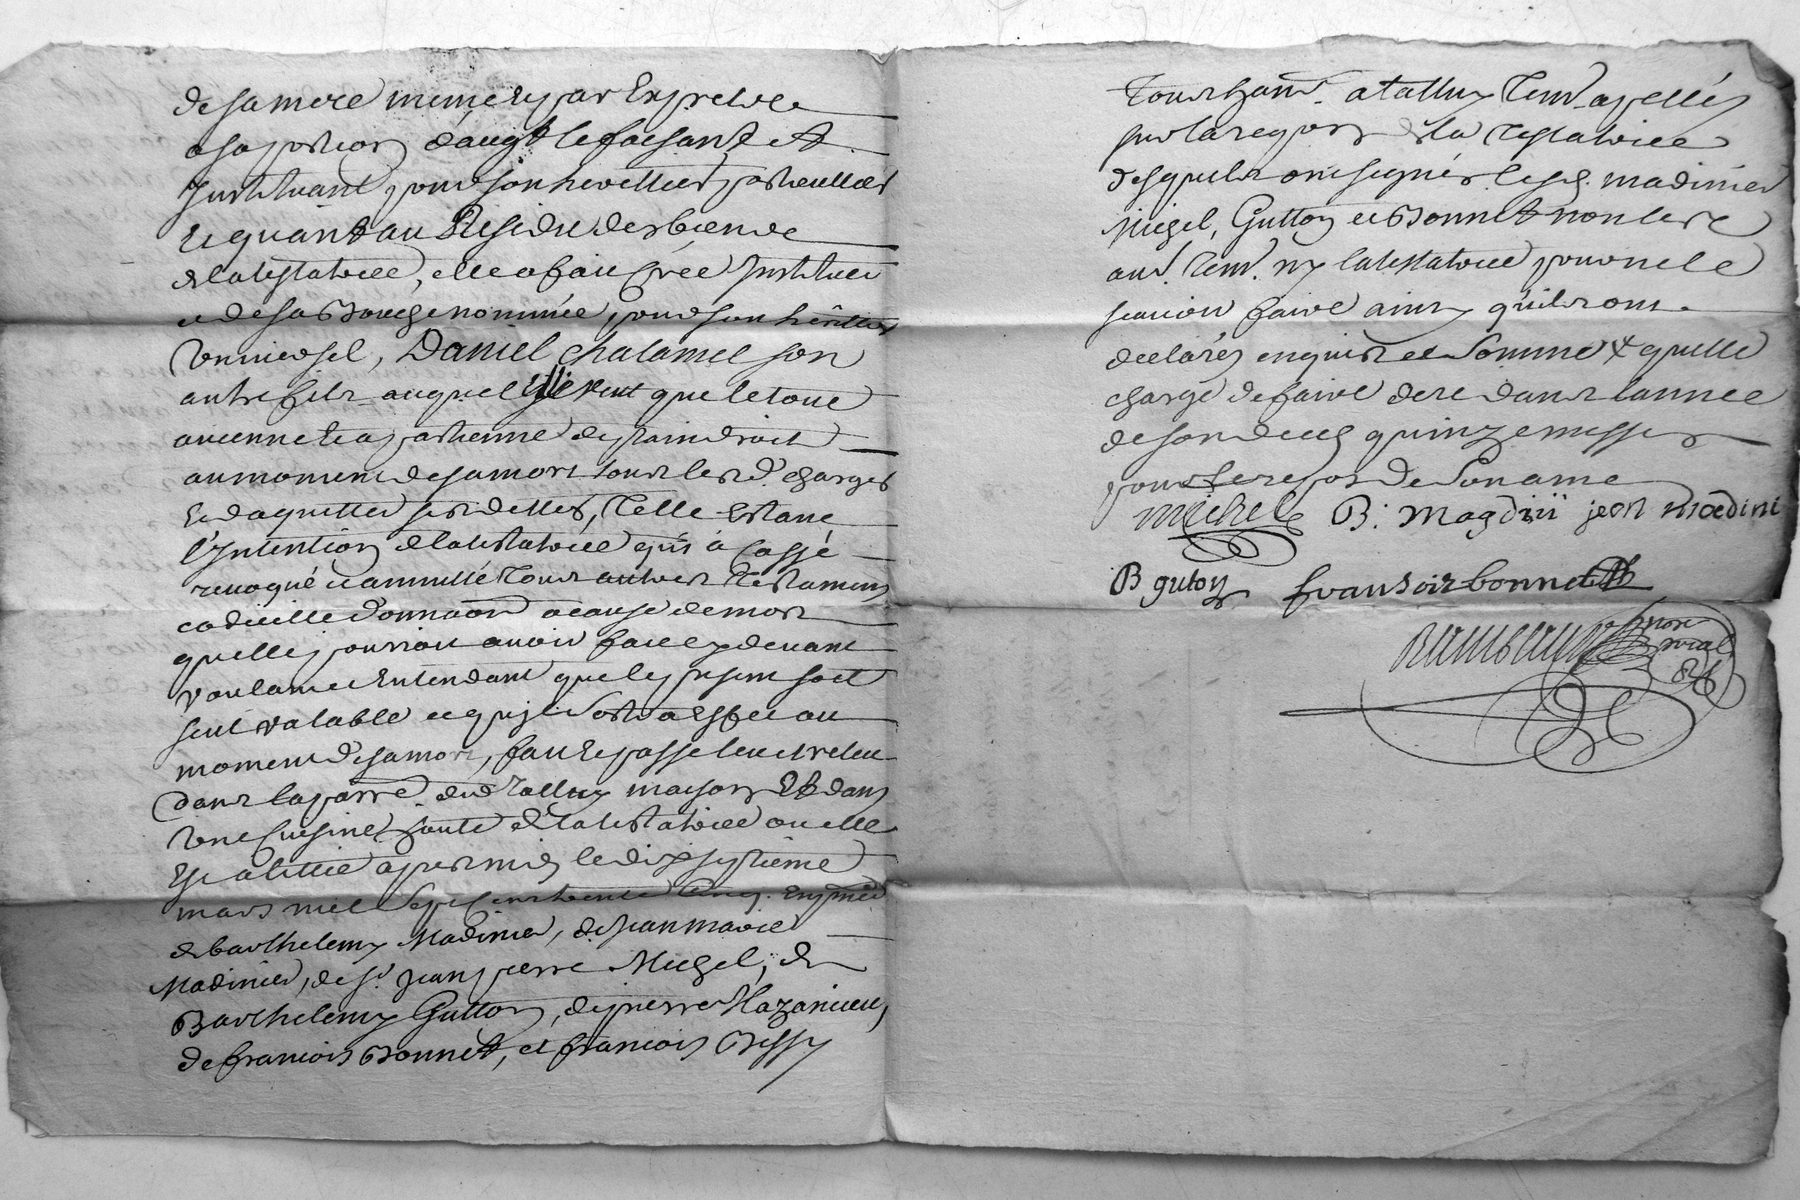 de sa mere meme et par
a sa portion d'augt le faisant et
Instituant pour son heritier particullier
Et quant au Residu des biens de
de la testatrice, elle a fait creé Institué
et de sa Bouche nommée pour son heritier
universel, Daniel chalamel son
autre fils auquel Elle veut que le tout
avienne et apartienne de plain droit
au moment de sa mort tous les d. charges
Et daquitter ses dettes, Telle Estant
l'Intention de la testatrice qui a Cassé
revoqué et annullé Tous autres Testamens
codicille donnaon a cause de mort
quelle pourroit avoir fait cy devant
voulant et Entendant que le present soit
seul valable et qu'il sorte a Effect au
moment de sa mort, fait et passé leu et releu
dans la parre. dud Talluy maison Et dans
une Cuisine haute de la testatrice ou elle
Est alittée apres midy le dix septieme
mars mil Sept Cens trente Cinq. En pnce
de barthelemy Madinier, de Jean marie
Madinier, de sr. Jean pierre Michel, de
Barthelemy Gutton, de pierre Hazanieu,
de francois Bonnet, et francois Bessy
Tous habans. a Talluy Tem. apellés
de la Testatrice
desquels ont signés lesd. madinier
Michel, Gutton et Bonnet non les
aud. Tem. ny la testatrice pour ne le
scavoir faire ainsy quils ont
declarés enquis et Sommé & quelle
charge de faire dire dans lannee
de son deces quinze messes
pour le repos de Son ame
michel B: Magdini jean madini
B guton fransois bonnet